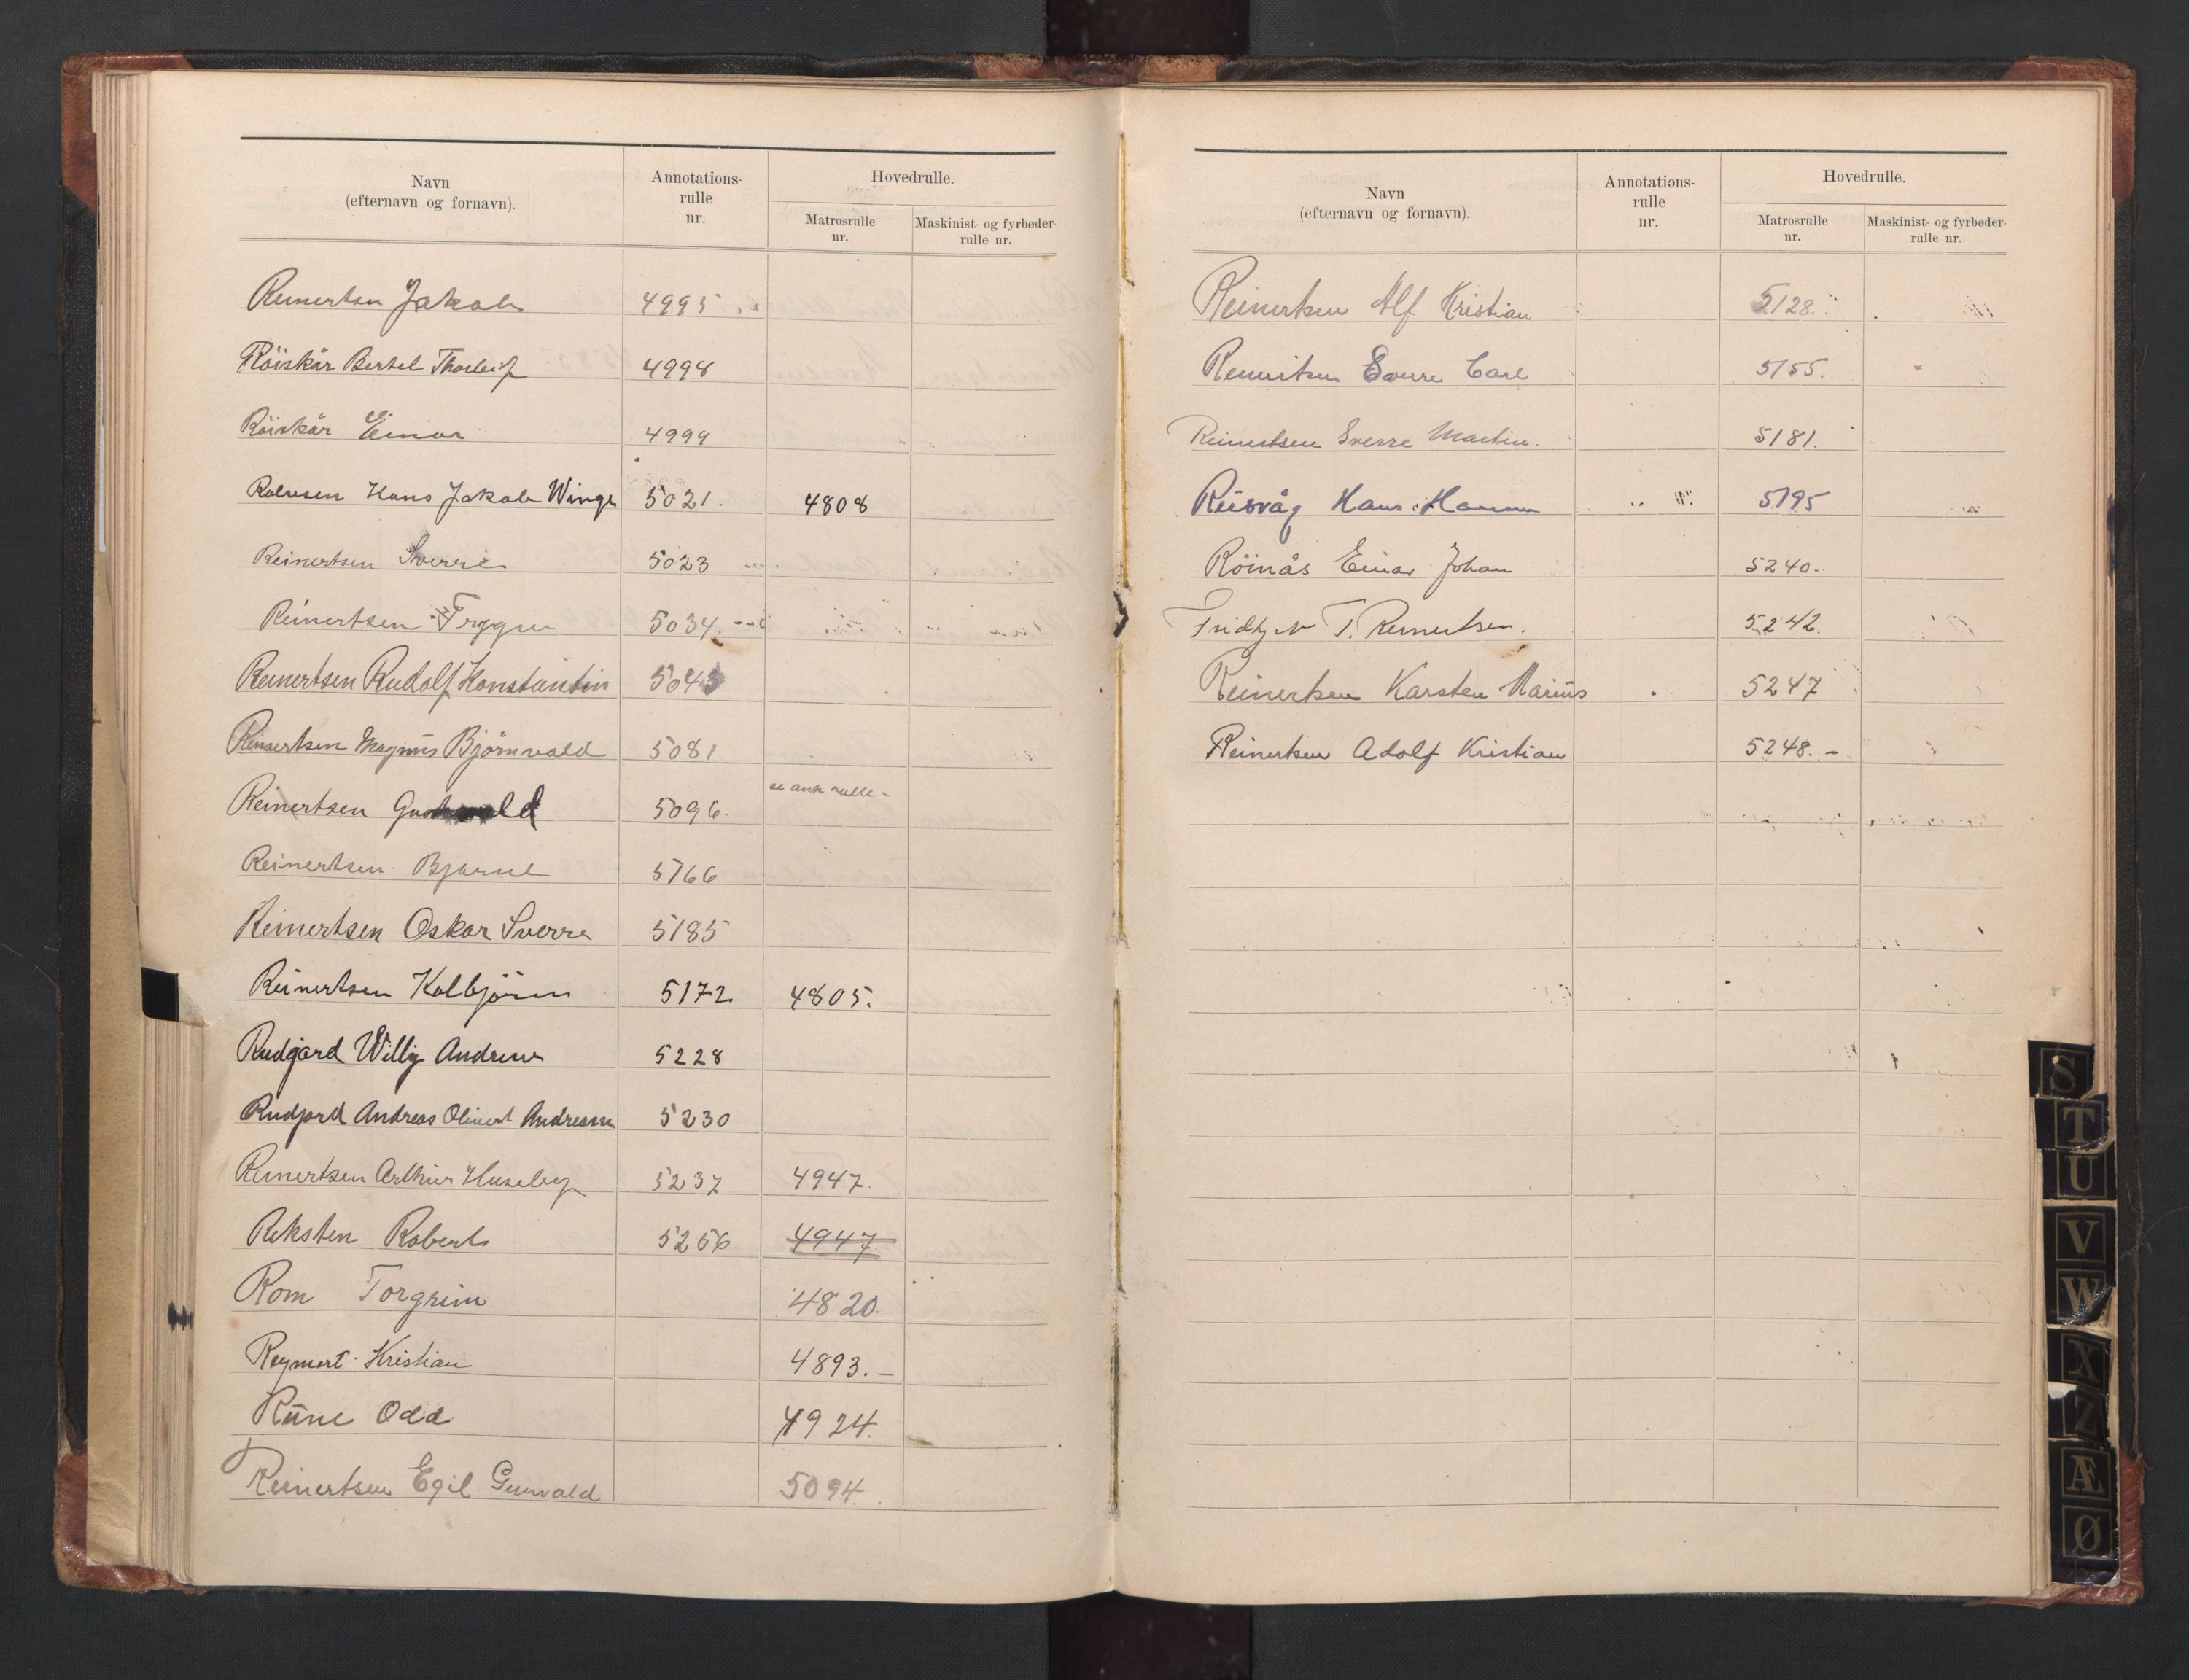 Navn (efternavn og fornavn). Annotations-rulle nr. Hovedrulle. Matrosrulle nr. Maskinist- og fyrbøder-rulle nr.
Reinertsen Jakob 4995
Röiskår Bertel Thorleif 4998
Röiskår Einar 4999
Rolvsen Hans Jakob Winge 5021. 4808
Reinertsen Sverre 5023
Reinertsen Trygve 5034.
Reinertsen Rudolf Konstantin 5043
Reinertsen Magnus Björnvald 5081
Reinertsen 5096. se ank rulle -
Reinertsen Bjarne 5166
Reinertsen Oskar Sverre 5185
Reinertsen Kolbjörn 5172 4805.
Rudgard Willy Andrew 5228
Rudjord Andreas Olivert Andreassen 5230
Reinertsen Arthur Huseby 5237 4947.
Reksten Robert 5266 4947.
Rom Torgrim 4820.
Reymert Kristian 4893. -
Rune Odd 4924.
Reinertsen Egil Gunvald 5094.
Navn (efternavn og fornavn). Annotations-rulle nr. Hovedrulle. Matrosrulle nr. Maskinist- og fyrbøder-rulle nr.
Reinertsen Alf Kristian 5128.
Reinertsen Sverre Carl 5155.
Reinertsen Sverre Martin. 5181.
Reisvåg Hans 5195
Röinås Einar Johan 5240.
Fridtjov T. Reinertsen. 5242.
Reinertsen Karsten Marius 5247
Reinertsen Adolf Kristian 5248. -
S
T
U
V
W
X
Z
Æ
Ø